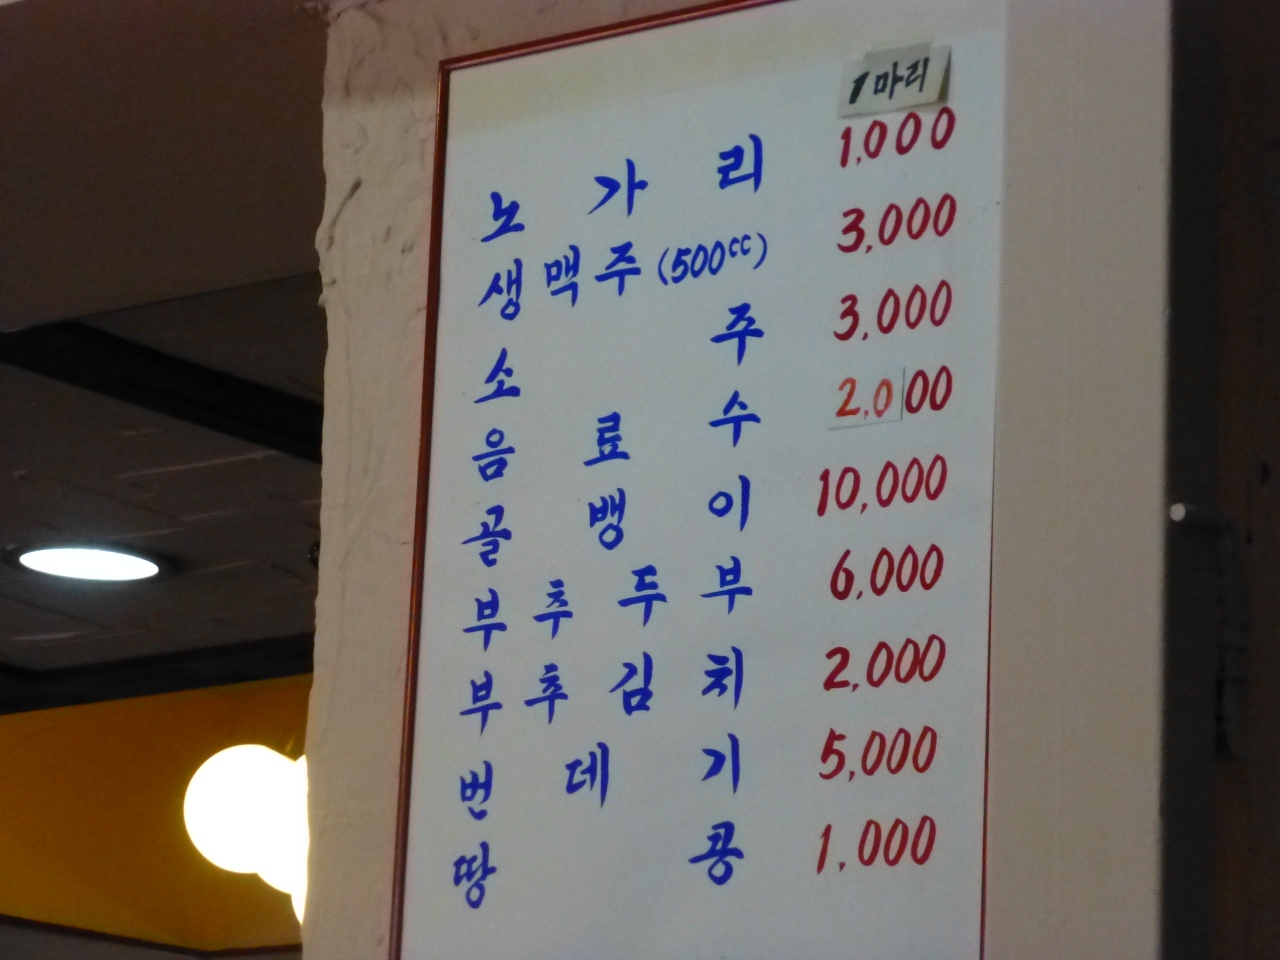 1마리
노가리 1,000
생맥주(500cc) 3,000
소주 3,000
음료수 2,000
골뱅이 10,000
부추두부 6,000
부추김치 2,000
번데기 5,000
땅콩 1,000